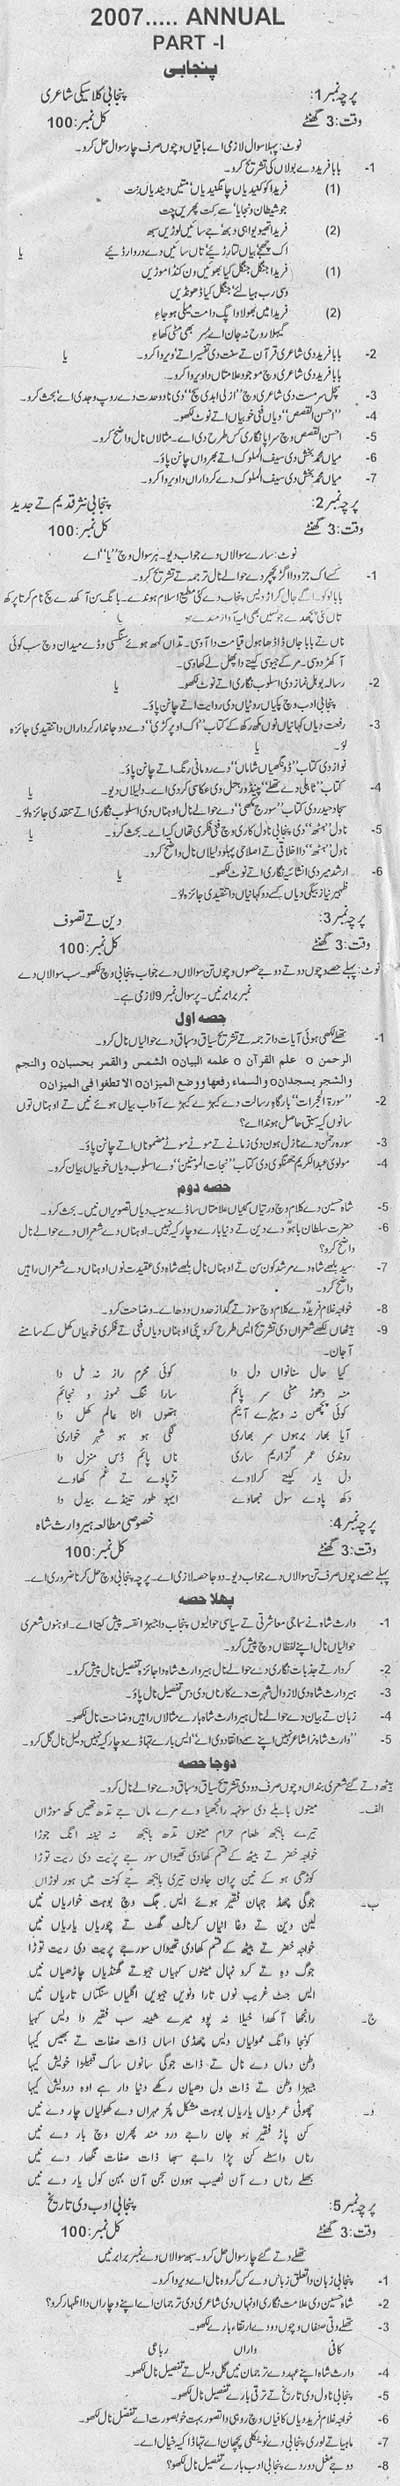 2007..... ANNUAL
PART -I
پنجابی
پرچہ نمبر 1: پنجابی کلاسیکی شاعری
وقت: 3 گھنٹے کل نمبر: 100
نوٹ: پہلا سوال لازمی اے باقیاں وچوں صرف چار سوال حل کرو۔
1- بابا فرید دے بولاں کی تشریح کرو۔
(1) فریدا کوکیندیاں چانگیندیاں متیں دیندیاں نِت
جو شیطان ونجایا سے کت پھیریں چت
(2) فریدا تھیو پواہی دبھ جے سائیں لوڑیں سبھ
اک چھجے بیاں لتاڑیئے تاں سائیں دے در واڑیئے یا
(1) فریدا جنگل جنگل کیا بھوئیں ون کنڈا موڑیں
وسی رب ہیالئے جنگل کیا ڈھونڈیں
(2) فریدا میں بھولاوا پگ دا مت میلی ہو جاءِ
گہیلا روح نہ جان اے سر بھی مٹی کھاءِ
2- بابا فرید دی شاعری قرآن تے سنت دی تفسیر اے ویروا کرو۔ یا
بابا فرید دی شاعری وچ موجود علامتاں دا ویروا کرو۔
3- سچل سرمست دی شاعری وچ "ازلی ابدی سچ" دی نا وحدت دے روپ وجدی اے بحث کرو۔
4- "احسن القصص" دیاں فنی خوبیاں اتے نوٹ لکھو۔
5- احسن القصص وچ سراپا نگاری کس طرح دی اے۔ مثالاں نال واضح کرو۔
6- میاں محمد بخش دی سیف الملوک اتے بھرواں چانن پاؤ۔
7- میاں محمد بخش دی سیف الملوک دے کرداراں دا ویروا کرو۔
پرچہ نمبر 2: پنجابی نثر قدیم تے جدید
وقت: 3 گھنٹے کل نمبر: 100
نوٹ: سارے سوالاں دے جواب دیو۔ ہر سوال وچ "یا" اے
1- کسے اک جزو دا اگڑ پچھڑ دے حوالے نال ترجمہ تے تشریح کرو۔
2- رسالہ بوہل نماز دی اسلوب نگاری اتے نوٹ لکھو۔ یا
پنجابی ادب وچ پکیاں روٹیاں دی روایت اتے چانن پاؤ۔
3- رفعت دیاں کہانیاں نوں مکھ رکھ کے کتاب "اک اوپری کڑی" دے دو جاندار کرداراں دا تنقیدی جائزہ
لؤ۔ یا
نواز دی کتاب "ڈونگھیاں شاماں" دے رومانی رنگ اتے چانن پاؤ۔
4- کتاب "ٹاہلی دے تھلے" پینڈو رہتل دی عکاسی کردی اے۔ دلیلاں دیو۔ یا
سجاد حیدر دی کتاب "سورج مکھی" دے حوالے نال اوہناں دی اسلوب نگاری اتے تنقیدی جائزہ لؤ۔
5- ناول "مٹھ" دی پنجابی ناول کاری وچ فنی فکری تھاں کیہ اے۔ بحث کرو۔ یا
ناول "مٹھ" دا اخلاقی تے اصلاحی پہلو دلیلاں نال واضح کرو۔
6- ارشد میر دی انشائیہ نگاری اتے نوٹ لکھو۔ یا
ظہیر نیاز بیگی دیاں کسے دو کہانیاں دا تنقیدی جائزہ لؤ۔
پرچہ نمبر 3: دین تے تصوف
وقت: 3 گھنٹے کل نمبر: 100
نوٹ: پہلے حصے وچوں دو تے دوجے حصوں وچوں تن سوالاں دے جواب پنجابی وچ لکھو۔ سب سوالاں دے
نمبر برابر نیں۔ پر سوال نمبر 9 لازمی ہے۔
حصہ اول
1- تھلے لکھی ہوئی آیات دا ترجمہ تے تشریح سیاق و سباق دے حوالیاں نال کرو۔
الرحمن o علم القرآن o علمه البيان o الشمس والقمر بحسبان o والنجم
والشجر يسجدان o والسماء رفعها ووضع الميزان o الا تطغوا فى الميزان o
2- "سورۃ الحجرات" بارگاہِ رسالت دے کیہڑے کیہڑے آداب بیاں ہوئے نیں تے اوہناں توں
سانوں کیہ سبق حاصل ہوندا اے؟
3- سورہ رحمٰن دے نازل ہون دی زمانے تے موٹے موٹے مضموناں اتے چانن پاؤ۔
4- مولوی عبدالکریم جھنگوی دی کتاب "نجات المومنین" دے اسلوب دیاں خوبیاں بیان کرو۔
حصہ دوم
5- شاہ حسین دے کلام وچ ورتیاں گئیاں علامتاں ساڈے وسیب دیاں تصویراں نیں۔ بحث کرو۔
6- حضرت سلطان باہو دے دین تے دنیا بارے وچار کیہ نیں۔ اوہناں دے شعراں دے حوالے نال
واضح کرو؟
7- سید بلھے شاہ دے مرشد کون سن تے اوہناں نال بلھے شاہ دی عقیدت نوں اوہناں دے شعراں راہیں
واضح کرو۔
8- خواجہ غلام فرید دے کلام وچ سوز تے گداز حدوں ودھ اے۔ وضاحت کرو۔
9- ہیٹھاں لکھے شعراں دی تشریح ایس طرح کرو پئی اوہناں دیاں فنی تے فکری خوبیاں کھل کے سامنے
آ جان۔
کیا حال سنانواں دل دا کوئی محرم راز نہ مل دا
منہ دھوڑ مٹی سر پائم سارا ننگ نموز ونجائم
کوئی پچھن نہ ویہڑے آئیم ہتھوں الٹا عالم کھل دا
آیا بھار برہوں سر بھاری لگی ہو ہو شہر خواری
روندی عمر گزاریم ساری ناں پائم ڈس منزل دا
دل یار کیتے کرلاوے تڑپاوے تے غم کھاوے
دکھ پاوے سول نبھاوے ایہو طور تینڈے بیدل دا
پرچہ نمبر 4: خصوصی مطالعہ ہیر وارث شاہ
وقت: 3 گھنٹے کل نمبر: 100
پہلے حصے وچوں صرف تن سوالاں دے جواب دیو۔ دوجا حصہ لازمی اے۔ پرچہ پنجابی وچ حل کرنا ضروری اے۔
پہلا حصہ
1- وارث شاہ نے سماجی معاشرتی تے سیاسی حوالیوں پنجاب دا جیہڑا نقشہ پیش کیتا اے۔ اوہنوں شعری
حوالیاں نال اپنے لفظاں وچ پیش کرو۔
2- کردار تے جذبات نگاری دے حوالے نال ہیر وارث شاہ دا جائزہ تفصیل نال پیش کرو۔
3- ہیر وارث شاہ دی لازوال شہرت دے کارناں دی دس تفصیل نال پاؤ۔
4- زبان تے بیان دے حوالے نال ہیر وارث شاہ بارے مثالاں راہیں وضاحت نال لکھو۔
5- "وارث شاہ نرا شاعر نہیں اپنے سمے دا نقاد وی اے" ایس بارے تہاڈے وچار کیہ نیں دلیل نال گل کرو۔
دوجا حصہ
ہیٹھ دتے گئے شعری بنداں وچوں صرف دو دی تشریح سیاق و سباق دے حوالے نال کرو۔
الف۔ مینوں بابلے دی سونہہ رانجھیا وے مرے ماں جے تدھ تھیں مکھ موڑاں
تیرے باجھ طعام حرام مینوں تدھ باجھ نہ نینہ انگ جوڑا
خواجہ خضر تے بیٹھ کے قسم کھادی تھیواں سور جے پریت دی ریت توڑا
کوڑھی ہو کے نین پران جاون تیری باجھ جے کونت میں ہور لوڑاں
ب۔ جوگی چھڈ جہان فقیر ہوئے ایس جگ وچ بوہت خواریاں نیں
لین دین تے دغا انیاں کرنا لٹ گھٹ تے چوریاں یاریاں نیں
خواجہ خضر تے بیٹھ کے قسم کھادی تھیواں سور جے پریت دی ریت توڑا
جوگ دیہ تے کرو نہال مینوں کہیاں جیوتے گھنڈیاں چاڑھیاں نیں
ایس جٹ غریب نوں تارا ونویں جیویں اگلیاں سنگتاں تاریاں نیں
ج۔ رانجھا آکھدا خیلا نہ پوو میرے شینہ سپ فقیر دا دیس کیہا
کونجا وانگ ممولیاں دیس چھڈی اساں ذات صفات تے بھیس کیہا
وطن دماں دے نال تے ذات جوگی سانوں ساک قبیلڑا خویش کیہا
جیہڑا وطن تے ذات ول دھیان رکھے دنیا دار ہے اوہ درویش کیہا
د۔ چھوٹی عمر دیاں یاریاں بوہت مشکل پتر مہراں دے کھولیاں چار دے نیں
کن پاڑ فقیر ہو جان راجے درد مند پھرن وچ بار دے نیں
رناں واسطے کن پڑا راجے سبھا ذات صفات نگھار دے نیں
بھلے رناں دے آن نصیب ہوون سجن آن بہن کول یار دے نیں
پرچہ نمبر 5: پنجابی ادب دی تاریخ
وقت: 3 گھنٹے کل نمبر: 100
تھلے دتے گئے چار سوال حل کرو۔ سبھ سوالاں دے نمبر برابر نیں
1- پنجابی زبان دا تعلق زباناں دے کس گروہ نال اے ویروا کرو۔
2- شاہ حسین دی علامت نگاری اونہاں دی شاعری دی ترجمان اے اپنے وچاراں دا اظہار کرو؟
3- تھلے دتی صنفاں وچوں دو دے ارتقاء بارے لکھو۔
کافی واراں رباعی
4- وارث شاہ اپنے عہد دے ترجمان نیں گل دلیل تے تفصیل نال لکھو۔
5- پنجابی ناول دی تاریخ تے ترقی بارے تفصیل نال لکھو۔
6- خواجہ غلام فرید دیاں کافیاں وچ روہی دا تصور بہت خوبصورت اے تفصیل نال لکھو۔
7- ماہیا تے لوری پنجابی دے نویکلی پچھان اے تہاڈا کیہ خیال اے۔
8- دوجے مغل دور دے پنجابی ادب بارے تفصیل نال لکھو؟